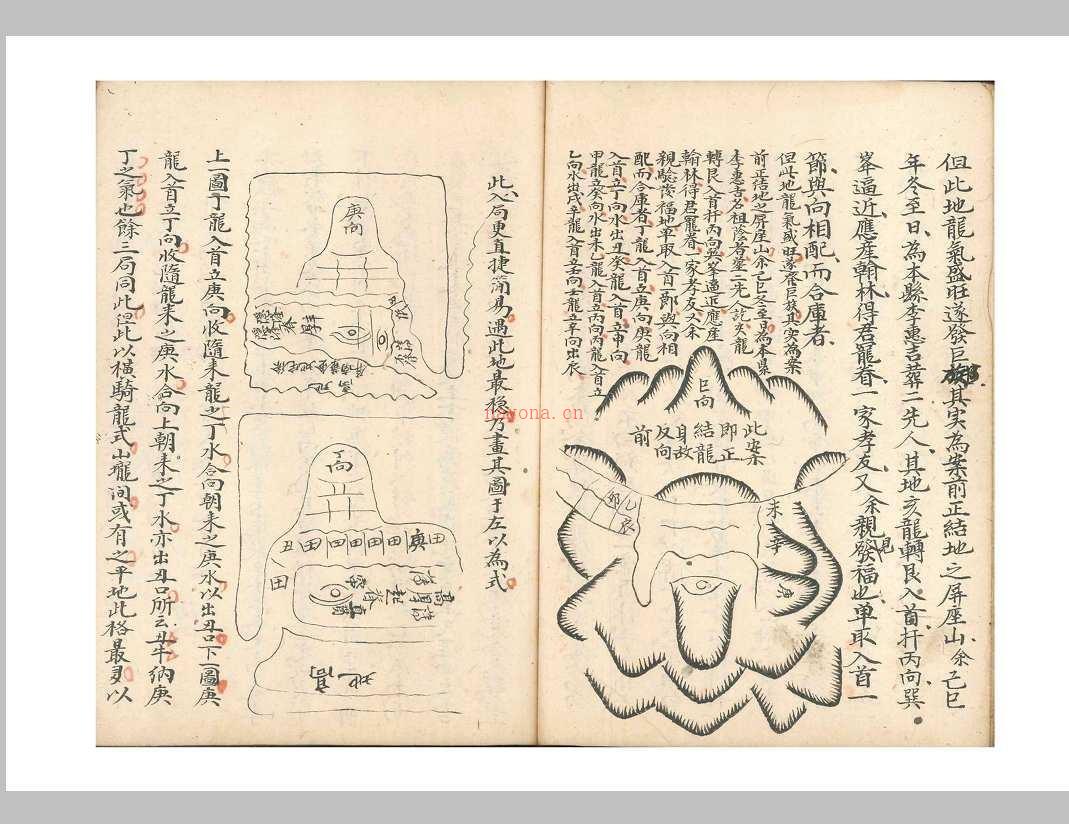 但此地龍氣盛旺遂發巨族其实為案前正結地之屏座山余己巳
年冬至日為本縣李惠吉葬二先人其地亥龍轉艮入首扦丙向巽
峯逼近應産翰林得君寵眷一家孝友又余親見發福也单取入首一
節與向相配而合庫者
但此地龍氣盛旺遂發巨族其实為案
前正結地之屏座山余己巳冬至日為本縣
李惠吉名祖陰若葬二先人訖亥龍
轉艮入首扦丙向巽峯逼近應産
翰林得君寵眷一家孝友又余
親驗發福地单取入首一節與向相
配而合庫者丁龍入首立庚向庚龍
入首立丁向水出丑癸龍入首立甲向
甲龍立癸向水出未乙龍入首立丙向丙龍入首立
乙向水出戌辛龍入首立壬向壬龍立辛向出辰
巳向
此案
即正
結龍
身政
反向
前
乙
辰
未
此入局更直捷簡易遇此地最穩方畫其圖于左以為式
庚向
丁向
丑田田田田田田庚田
田
高
地高
上圖丁龍入首立庚向收隨来龍之丁水合向朝来之庚水以出丑口下圖庚
龍入首立丁向收隨龍来之庚水合向上朝来之丁水亦出丑口所云丑牛納庚
丁之氣也餘三局同此但此以橫騎龍式山壠间或有之平地此格最多以
nowona.cn